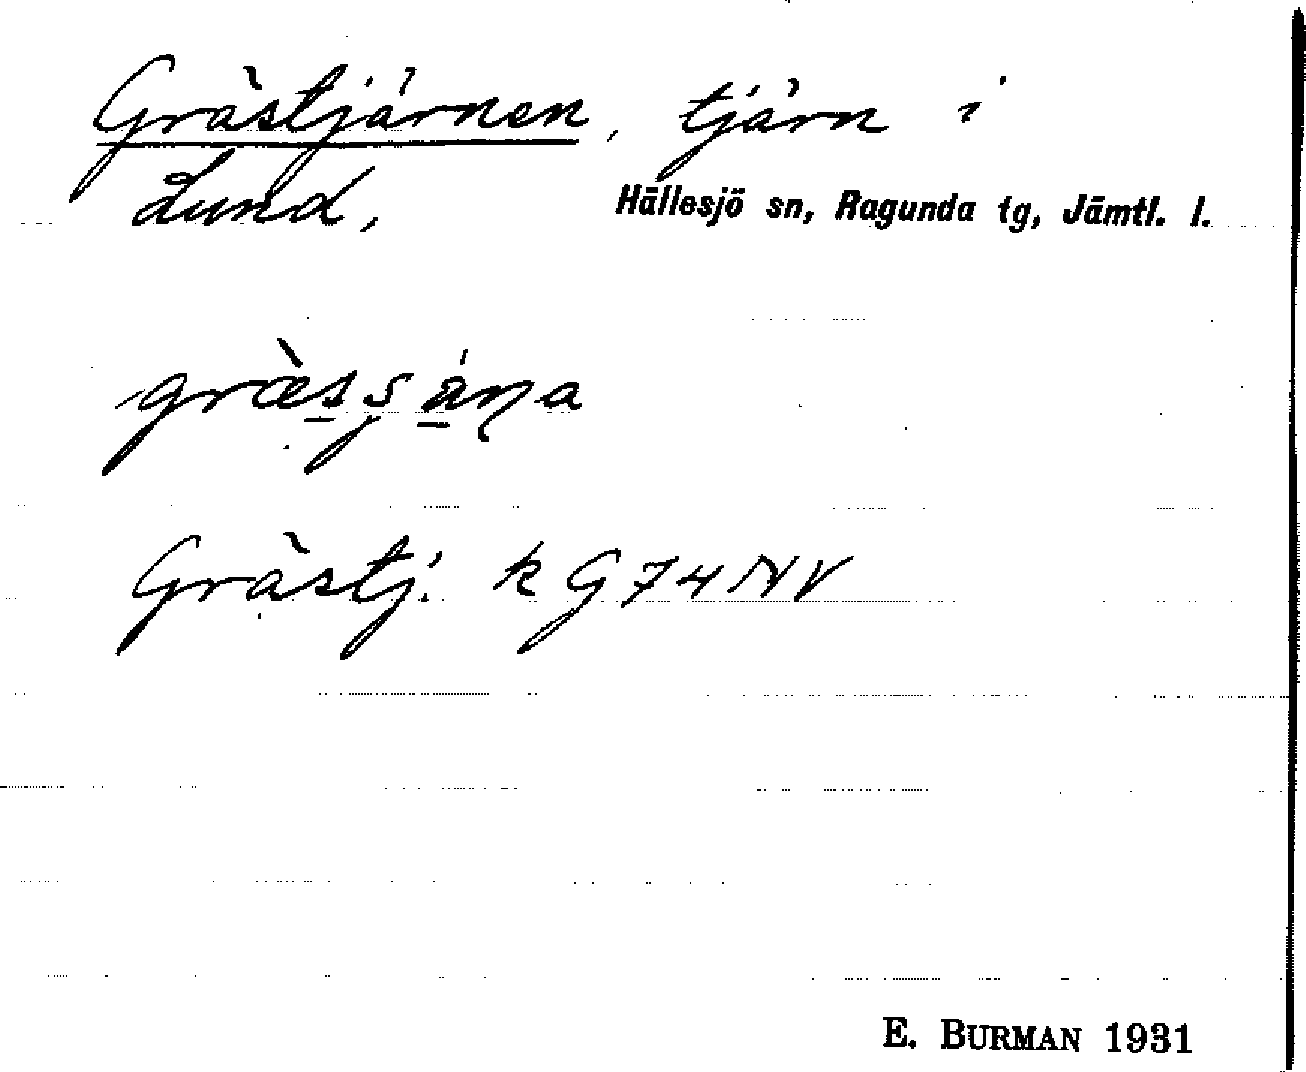 Grästjärnen, tjärn i
Lund, Hällesjö sn, Ragunda tg, Jämtl. l.
Grästj. k G74NV
E. BURMAN 1931